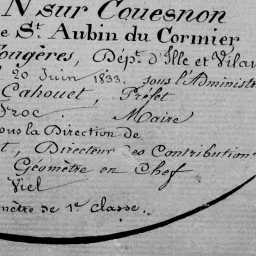 N sur Couesnon
e St. Aubin du Cormier
ougères, Dépt. d'Ille et Vilai
20 Juin 1833, sous l'Administr
Cahouet, Préfet
Froc. Maire
ous la Direction de
t, Directeur des Contribution
Géomètre en Chef
Viel
mètre de 1e classe.